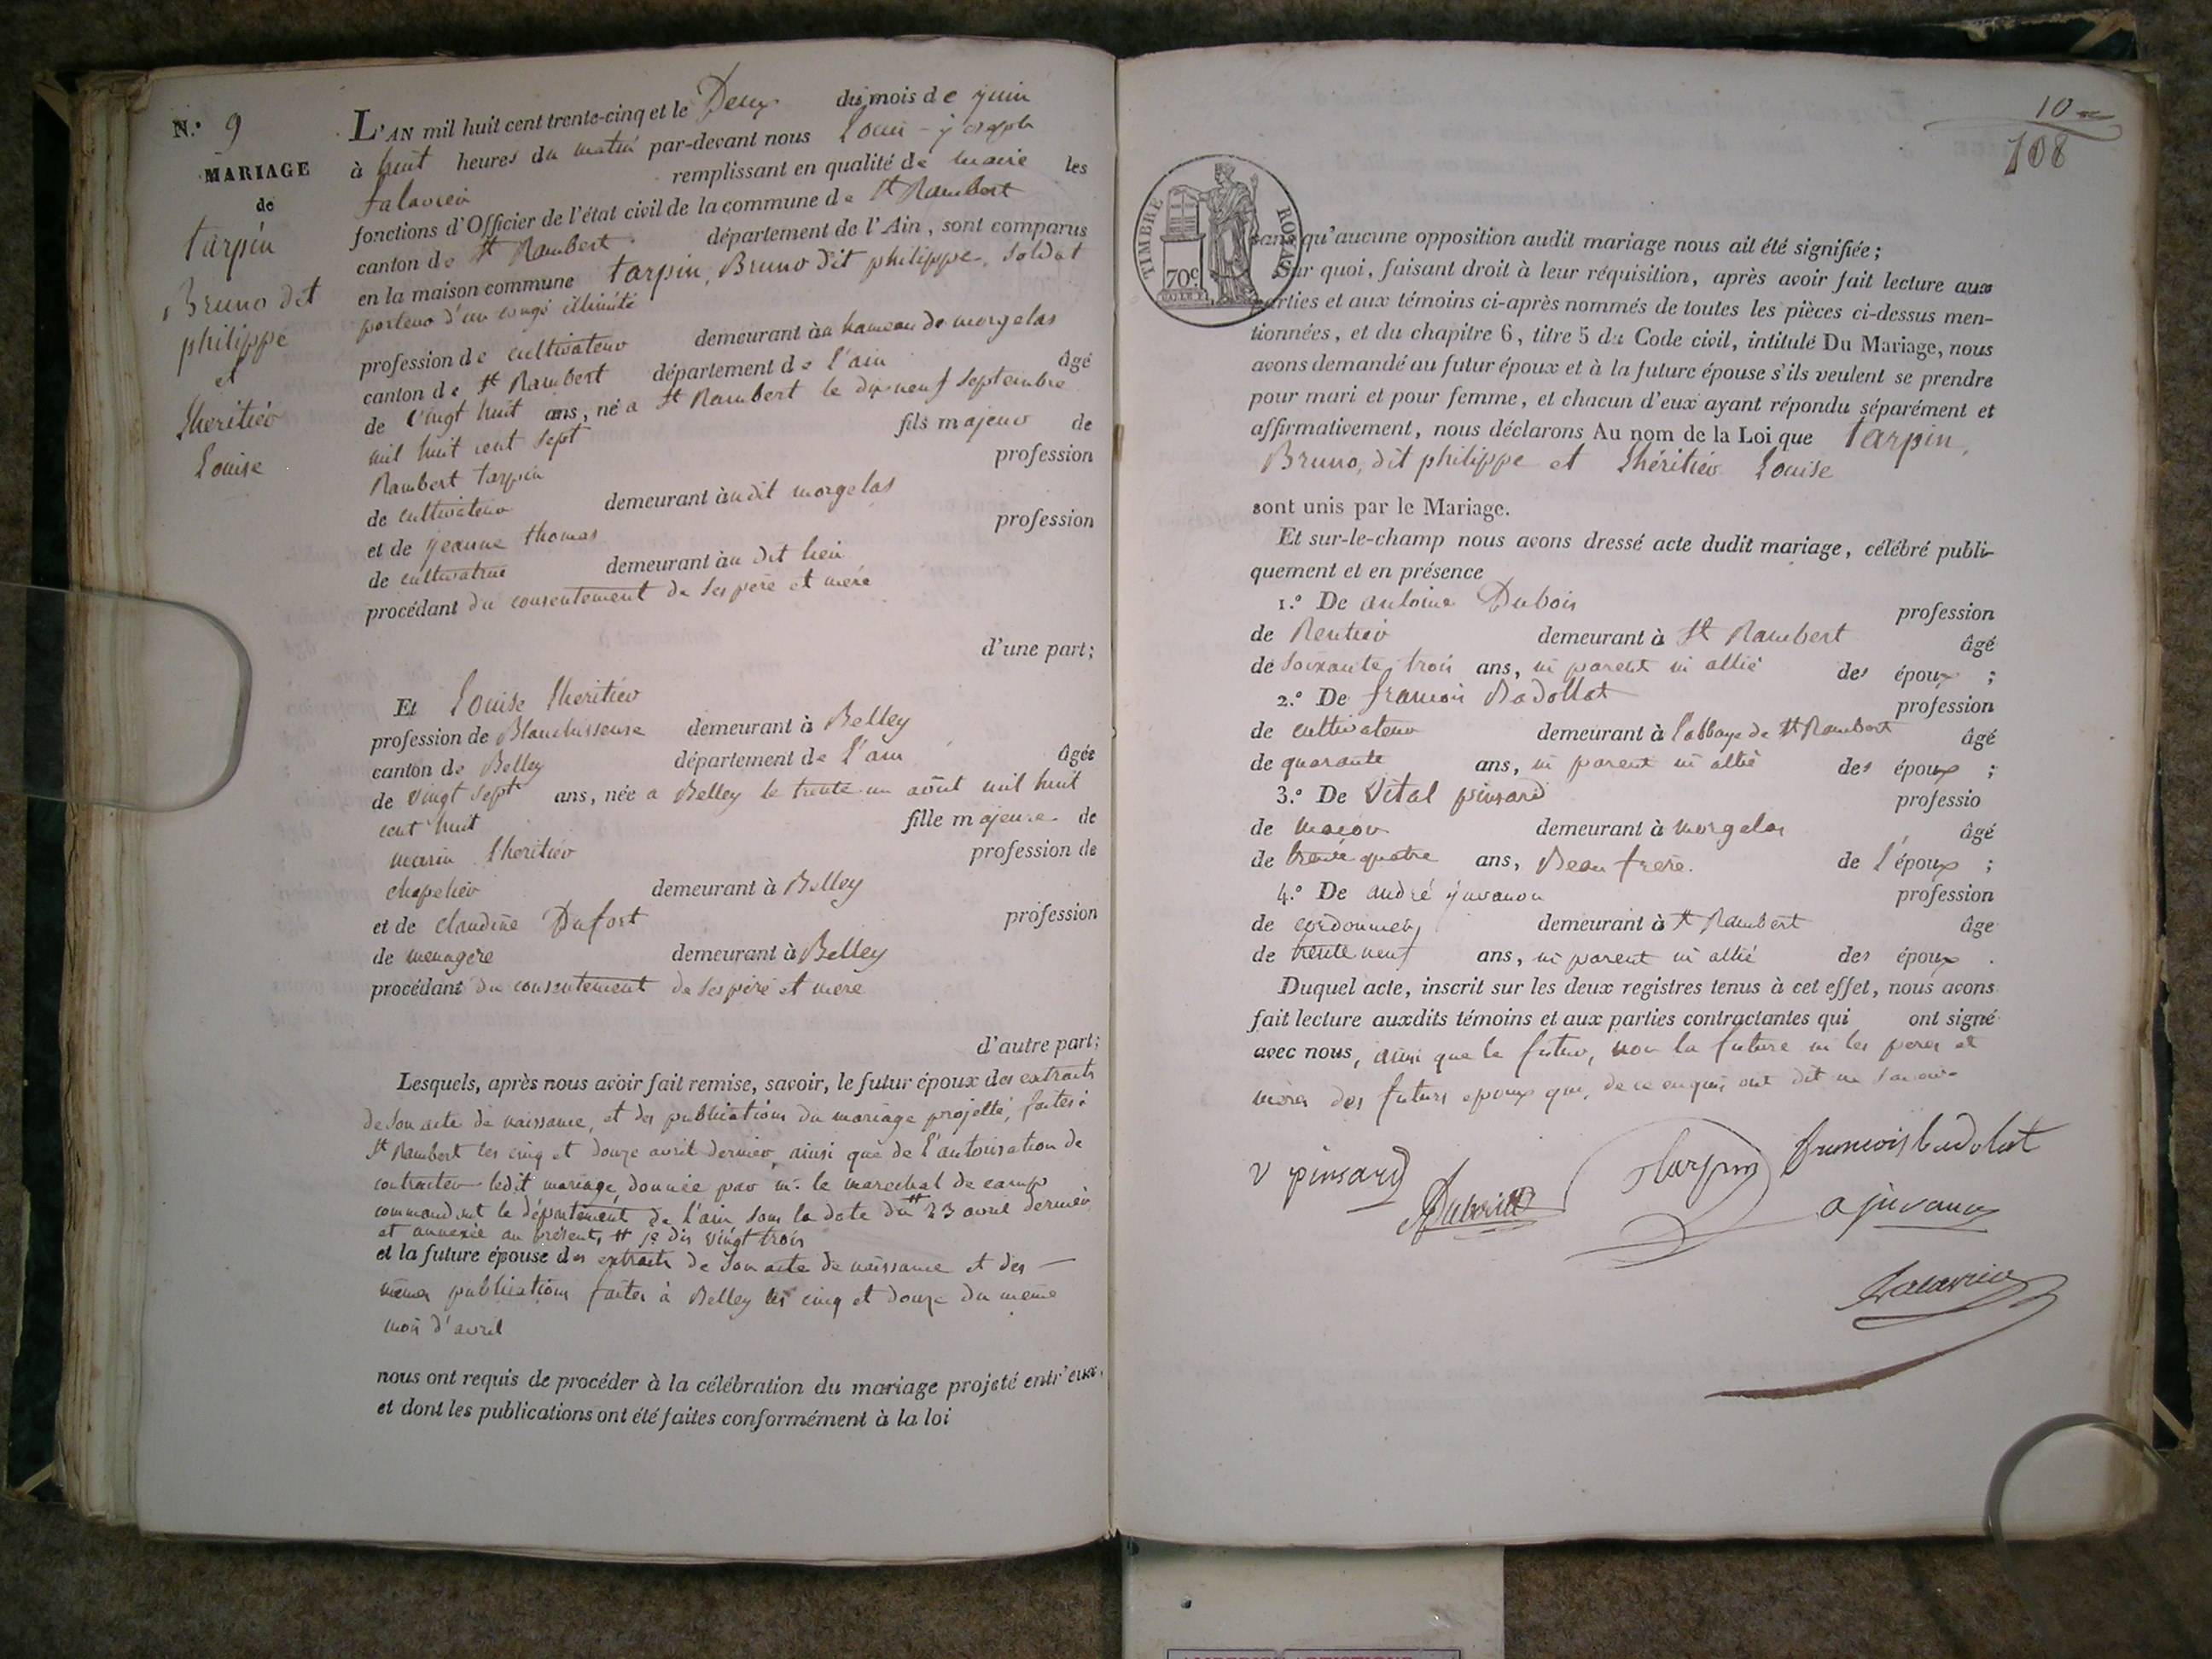 N.º 9
MARIAGE
de
tarpin
Bruno dit
philippe
et
Lheritier
Louise
L'AN mil huit cent trente-cinq et le Deux du mois de juin
à huit heures du matin par-devant nous Louis-joseph
falavier remplissant en qualité de maire les
fonctions d'Officier de l'état civil de la commune de St Rambert
canton de St Rambert département de l'Ain, sont comparus
en la maison commune tarpin, Bruno dit philippe, soldat
porteur d'un congé illimité
profession de cultivateur demeurant au hameau de morgelas
canton de St Rambert département de l'ain âgé
de vingt huit ans, né a St Rambert le dix neuf septembre
mil huit cent sept fils majeur de
Rambert tarpin profession
de cultivateur demeurant audit morgelas
et de jeanne thomas profession
de cultivatrice demeurant au dit lieu
procédant du consentement de ses père et mère
d'une part;
Et Louise Lheritier
profession de Blanchisseuse demeurant à Belley
canton de Belley département de l'ain âgée
de vingt sept ans, née a Belley le trente un août mil huit
cent huit fille majeure de
marin Lheritier profession de
chapelier demeurant à Belley
et de claudine Dufort profession
de menagere demeurant à Belley
procédant du consentement de ses père et mere
d'autre part;
Lesquels, après nous avoir fait remise, savoir, le futur époux des extraits
de son acte de naissance, et des publications du mariage projetté, faites à
St Rambert les cinq et douze avril dernier, ainsi que de l'autorisation de
contracter ledit mariage, donnée par m. le marechal de camp
commandant le département de l'ain sous la date du # 23 avril dernier
et annexée au présent, # je dis vingt trois
et la future épouse des extraits de son acte de naissance et des —
mêmes publications faites à Belley les cinq et douze du même
mois d'avril
nous ont requis de procéder à la célébration du mariage projeté entr'eux,
et dont les publications ont été faites conformément à la loi
10
108
TIMBRE ROYAL
70c
sans qu'aucune opposition audit mariage nous ait été signifiée;
Sur quoi, faisant droit à leur réquisition, après avoir fait lecture aux
parties et aux témoins ci-après nommés de toutes les pièces ci-dessus men-
tionnées, et du chapitre 6, titre 5 du Code civil, intitulé Du Mariage, nous
avons demandé au futur époux et à la future épouse s'ils veulent se prendre
pour mari et pour femme, et chacun d'eux ayant répondu séparément et
affirmativement, nous déclarons Au nom de la Loi que tarpin,
Bruno, dit philippe et Lhéritier Louise
sont unis par le Mariage.
Et sur-le-champ nous avons dressé acte dudit mariage, célébré publi-
quement et en présence
1.º De antoine Dubois profession
de Rentier demeurant à St Rambert âgé
de soixante trois ans, ni parent ni allié des époux ;
2.º De francois Badollat profession
de cultivateur demeurant à l'abbaye de St Rambert âgé
de quarante ans, ni parent ni allié des époux ;
3.º De Vital pinsard professio
de macon demeurant à morgelas âgé
de trente quatre ans, Beau frere. de l'époux ;
4.º De andré juvanon profession
de cordonnier, demeurant à St Rambert âge
de trente neuf ans, ni parent ni allié des époux .
Duquel acte, inscrit sur les deux registres tenus à cet effet, nous avons
fait lecture auxdits témoins et aux parties contractantes qui ont signé
avec nous, ainsi que le futur, non la future ni les peres et
meres des futurs epoux qui, de ce enquis ont dit ne savoir
v pinsard
Dubois
Tarpin
francois badolat
a juvanon
falavier